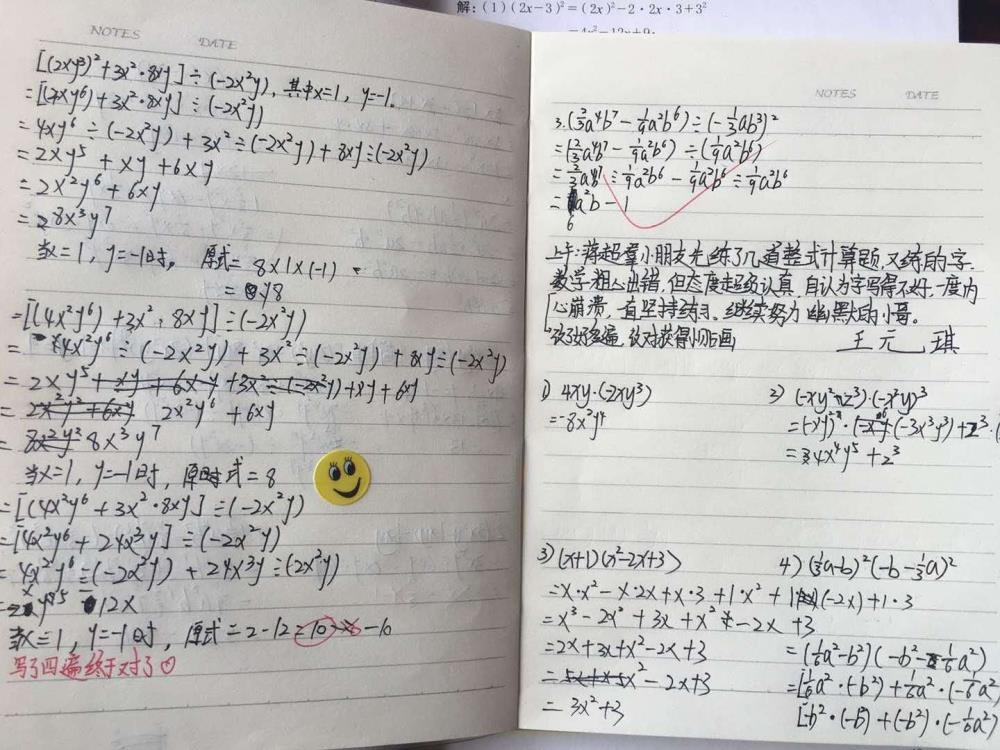 解：(1)(2x-3)²=(2x)²-2·2x·3+3²
=4x²-12x+9;
NOTES DATE
[(2xy³)²+3x²·8xy]÷(-2x²y), 其中x=1, y=-1.
=[(4xy⁶)+3x²·8xy]÷(-2x²y)
=4xy⁶÷(-2x²y)+3x²÷(-2x²y)+8xy÷(-2x²y)
=2xy⁵+xy+6xy
=2x²y⁶+6xy
=8x³y⁷
当x=1, y=-1时, 原式=8×1×(-1)
=8
=[(4x²y⁶)+3x²·8xy]÷(-2x²y)
=4x²y⁶÷(-2x²y)+3x²÷(-2x²y)+8xy÷(-2x²y)
=2xy⁵+xy+6xy+3x²÷(-2x²y)+xy+6xy
=2x²y²+6xy 2x²y⁶+6xy
=8x²y² 8x³y⁷
当x=1, y=-1时, 原式=8
=[(4x²y⁶+3x²·8xy]÷(-2x²y)
=[4x²y⁶+24x³y]÷(-2x²y)
=4x²y⁶÷(-2x²y)+24x³y÷(2x²y)
y⁵ 12x
当x=1, y=-1时, 原式=2-12=10 -10
写了四遍终于对了♡
NOTES DATE
3.(⅔a⁴b⁷-⅑a²b⁶)÷(-⅓ab³)²
=(⅔a⁴b⁷-⅑a²b⁶)÷(⅑a²b⁶)
=⅔a⁴b⁷÷⅑a²b⁶-⅑a²b⁶÷⅑a²b⁶
=6a²b-1
上午:蒋超群小朋友先练了几道整式计算题,又练的字.
数学粗心出错,但态度超级认真,自认为字写得不好,一度内
心崩溃,一直坚持练习,继续努力幽默的小哥。
王元琪
1) 4xy·(-2xy³)
=-8x²y⁴
2) (-xy²z³)·(-x²y)³
=(-3x³y³)+z³·(
=34x⁴y⁵+z³
3) (x+1)(x²-2x+3)
=x·x²-x·2x+x·3+1·x²+1(-2x)+1·3
=x³-2x²+3x+x²-2x+3
=2x+3x+x²-2x+3
=5x+x²-2x+3
=3x²+3
4) (⅓a-b)²(-b-⅓a)²
=(⅙a²-b²)(-b²-⅙a²)
=[⅙a²·(-b²)+⅙a²·(-⅙a²)
[-b²·(-b²)+(-b²)·(-⅙a²)